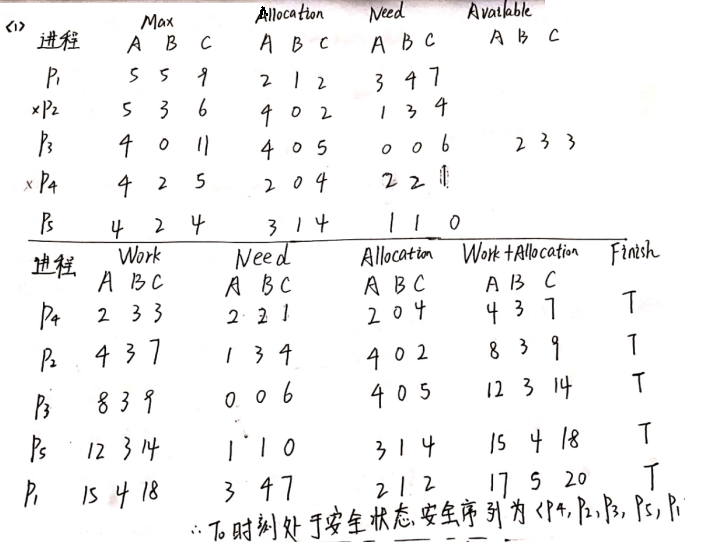 <1> 进程 Max Allocation Need Available
A B C A B C A B C A B C
P1 5 5 9 2 1 2 3 4 7
×P2 5 3 6 4 0 2 1 3 4
P3 4 0 11 4 0 5 0 0 6 2 3 3
×P4 4 2 5 2 0 4 2 2 1
P5 4 2 4 3 1 4 1 1 0
进程 Work Need Allocation Work+Allocation Finish
A B C A B C A B C A B C
P4 2 3 3 2 2 1 2 0 4 4 3 7 T
P2 4 3 7 1 3 4 4 0 2 8 3 9 T
P3 8 3 9 0 0 6 4 0 5 12 3 14 T
P5 12 3 14 1 1 0 3 1 4 15 4 18 T
P1 15 4 18 3 4 7 2 1 2 17 5 20 T
∴T0时刻处于安全状态,安全序列为<P4,P2,P3,P5,P1